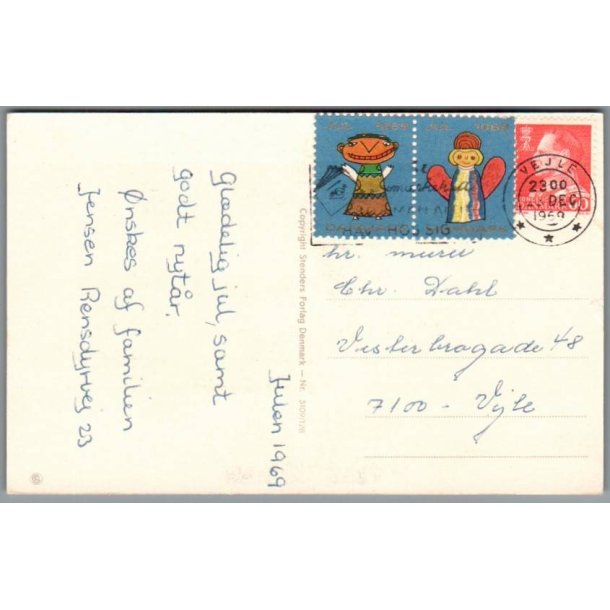 Julen 1969
Glædelig jul, samt
godt nytår,
Ønskes af familien
Jensen Rensdyrvej 23
Copyright Stenders Forlag Danmark — Nr. 5109/128
JUL 1969 JUL 1969
DANMARK DANMARK
HOS SIG
VEJLE
2300
DEC
1969
hr. murer
Chr. Dahl
Vesterbrogade 48
7100 - Vejle